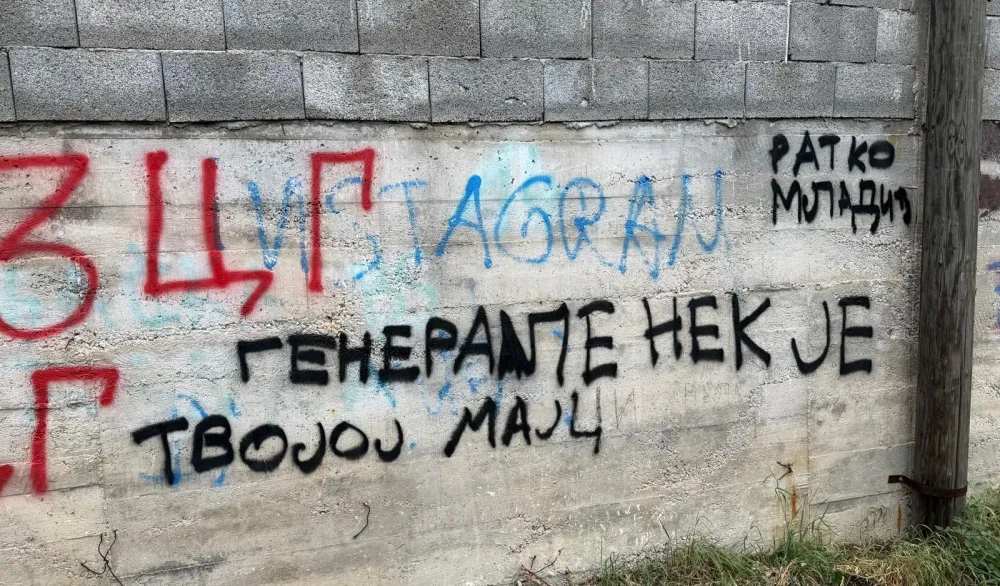 ЗЦГ
INSTAGRAM
РАТКО
МЛАДИЋ
ГЕНЕРАЛЕ НЕК ЈЕ
ТВОЈОЈ МАЈЦИ
Г